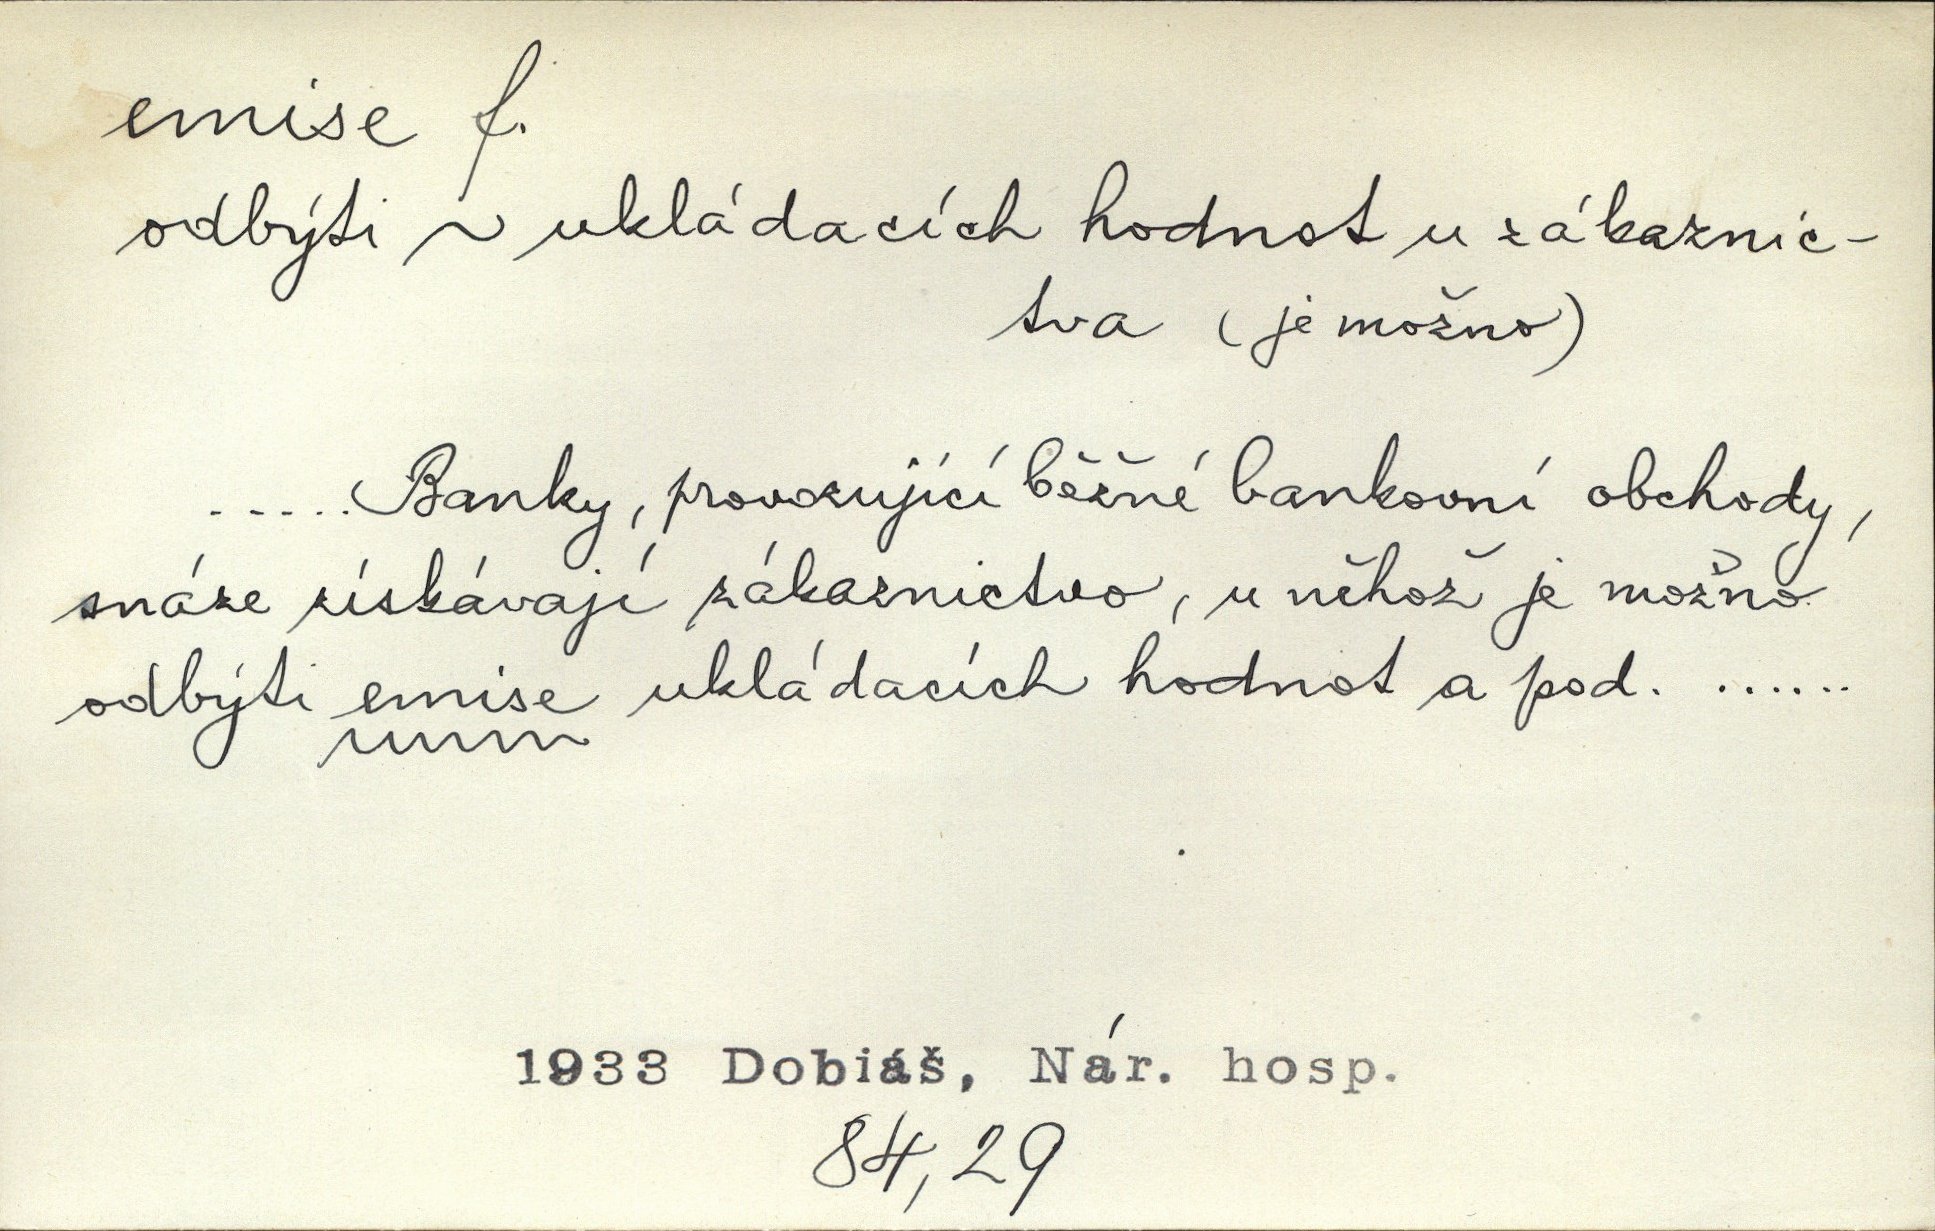 emise f.
odbýti ~ ukládacích hodnot u zákaznic-
tva (je možno)
.....Banky, provozující běžné bankovní obchody,
snáze získávají zákaznictvo, u něhož je možno
odbýti emise ukládacích hodnot a pod. ......
1933 Dobiáš, Nár. hosp.
84,29